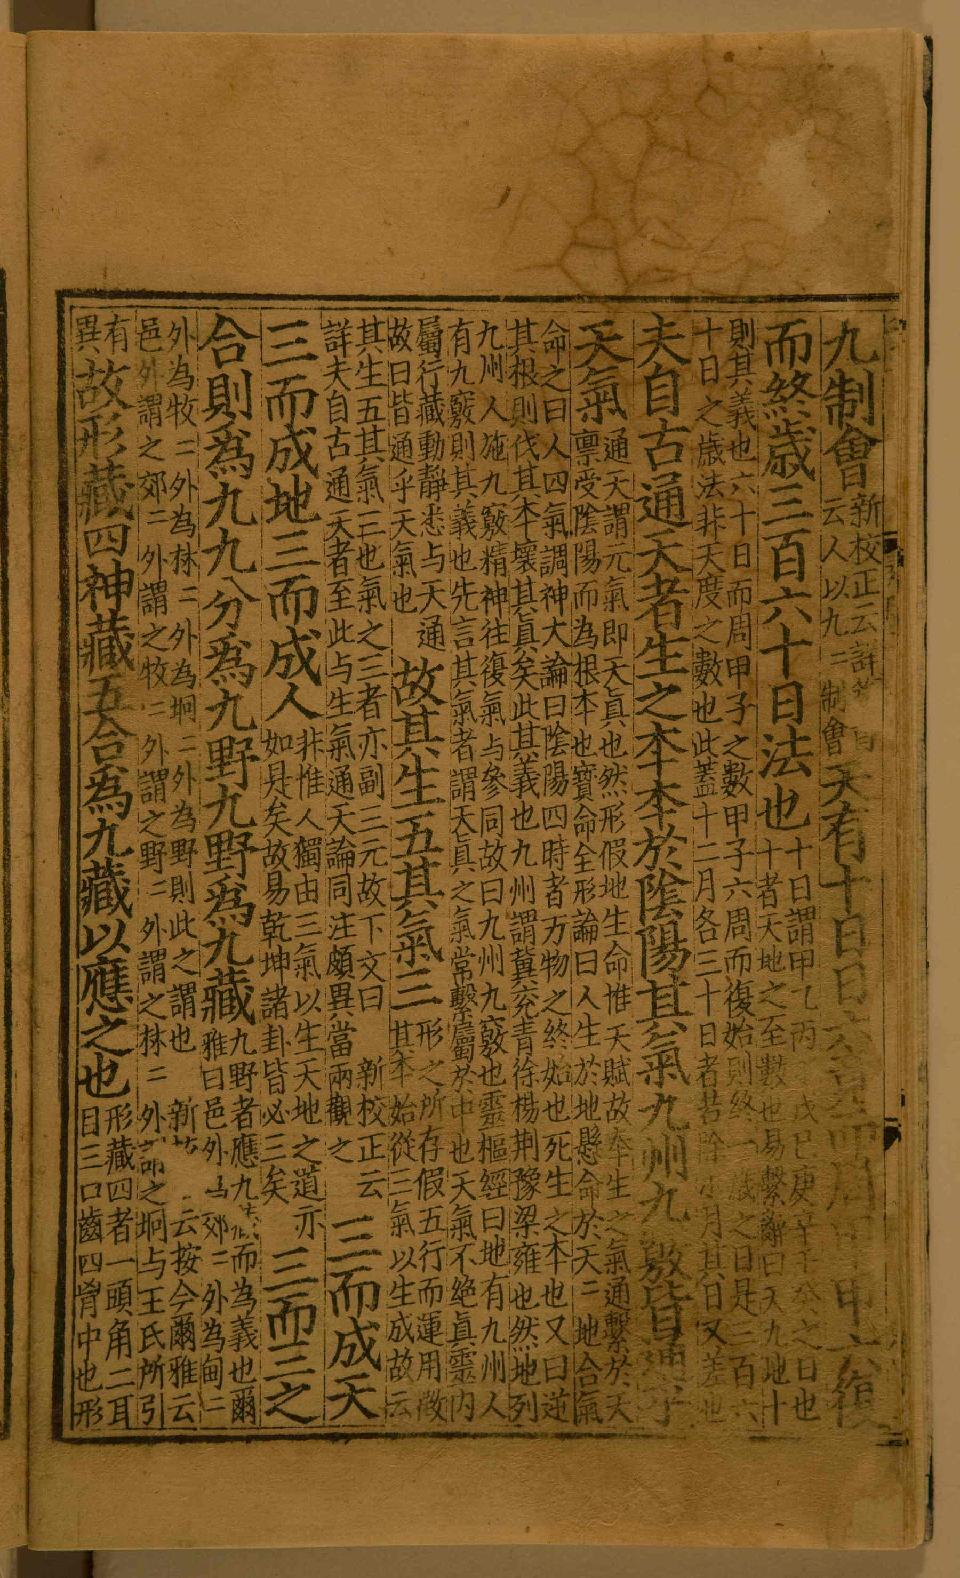 九制會新校正云詳
云人以九二制會天有十日日六竟而周甲甲六復
而終歲三百六十日法也十日謂甲乙丙戊己庚辛壬癸之日也
十者天地之至數也易繫辭曰天九地十
則其義也六十日而周甲子之數甲子六周而復始則終一歲之日是三百六
十日之歲法非天度之數也此蓋十二月各三十日者若除小月其日又差也
夫自古通天者生之本本於陰陽其氣九州九竅皆通乎
天氣通天謂元氣即天真也然形假地生命惟天賦故奉生之氣通繫於天
稟受陰陽而為根本也寶命全形論曰人生於地懸命於天二地合氣
命之曰人四氣調神大論曰陰陽四時者万物之終始也死生之本也又曰逆
其根則伐其本壞其真矣此其義也九州謂冀兗青徐楊荆豫梁雍也然地列
九州人施九竅精神往復氣与參同故曰九州九竅也靈樞經曰地有九州人
有九竅則其義也先言其氣者謂天真之氣常繫屬於中也天氣不絶真靈內
屬行藏動靜悉与天通
故曰皆通乎天氣也故其生五其氣三形之所存假五行而運用敚
其本始從三氣以生成故云
其生五其氣三也氣之三者亦副三元故下文曰 新校正云
詳夫自古通天者至此与生氣通天論同注頗異當兩觀之三而成天
三而成地三而成人非惟人獨由三氣以生天地之道亦
如是矣故易乾坤諸卦皆必三矣三而三之
合則爲九九分爲九野九野爲九藏九野者應九藏而為義也爾
雅曰邑外為郊二外為甸二
外為牧二外為林二外為坰二外為野則此之謂也 新校云按今爾雅云
邑外謂之郊二外謂之牧二外謂之野二外謂之林二外謂之坰与王氏所引
有
異故形藏四神藏五合為九藏以應之也形藏四者一頭角二耳
目三口齒四胷中也形